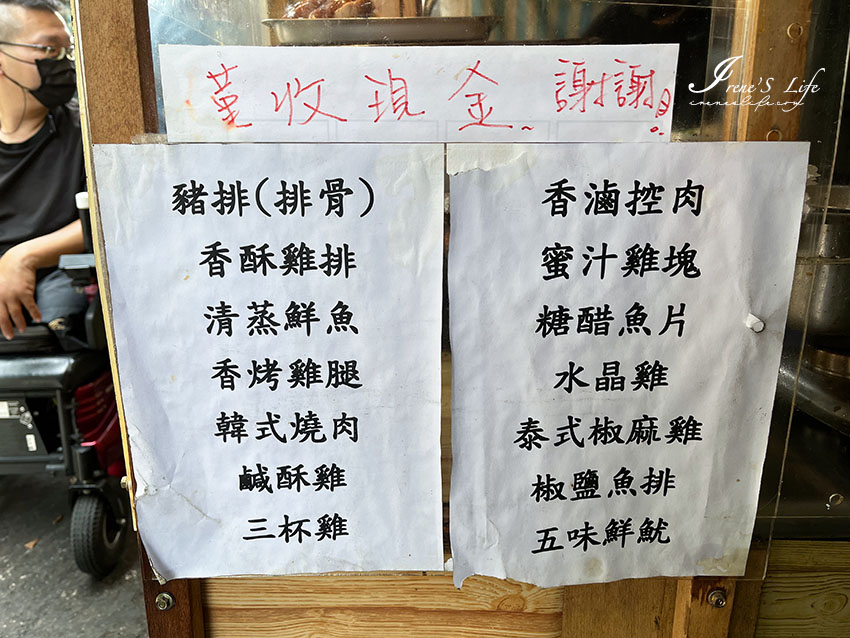 堇收現金 謝謝
Irene'S Life
豬排(排骨)
香酥雞排
清蒸鮮魚
香烤雞腿
韓式燒肉
鹹酥雞
三杯雞
香滷控肉
蜜汁雞塊
糖醋魚片
水晶雞
泰式椒麻雞
椒鹽魚排
五味鮮魷